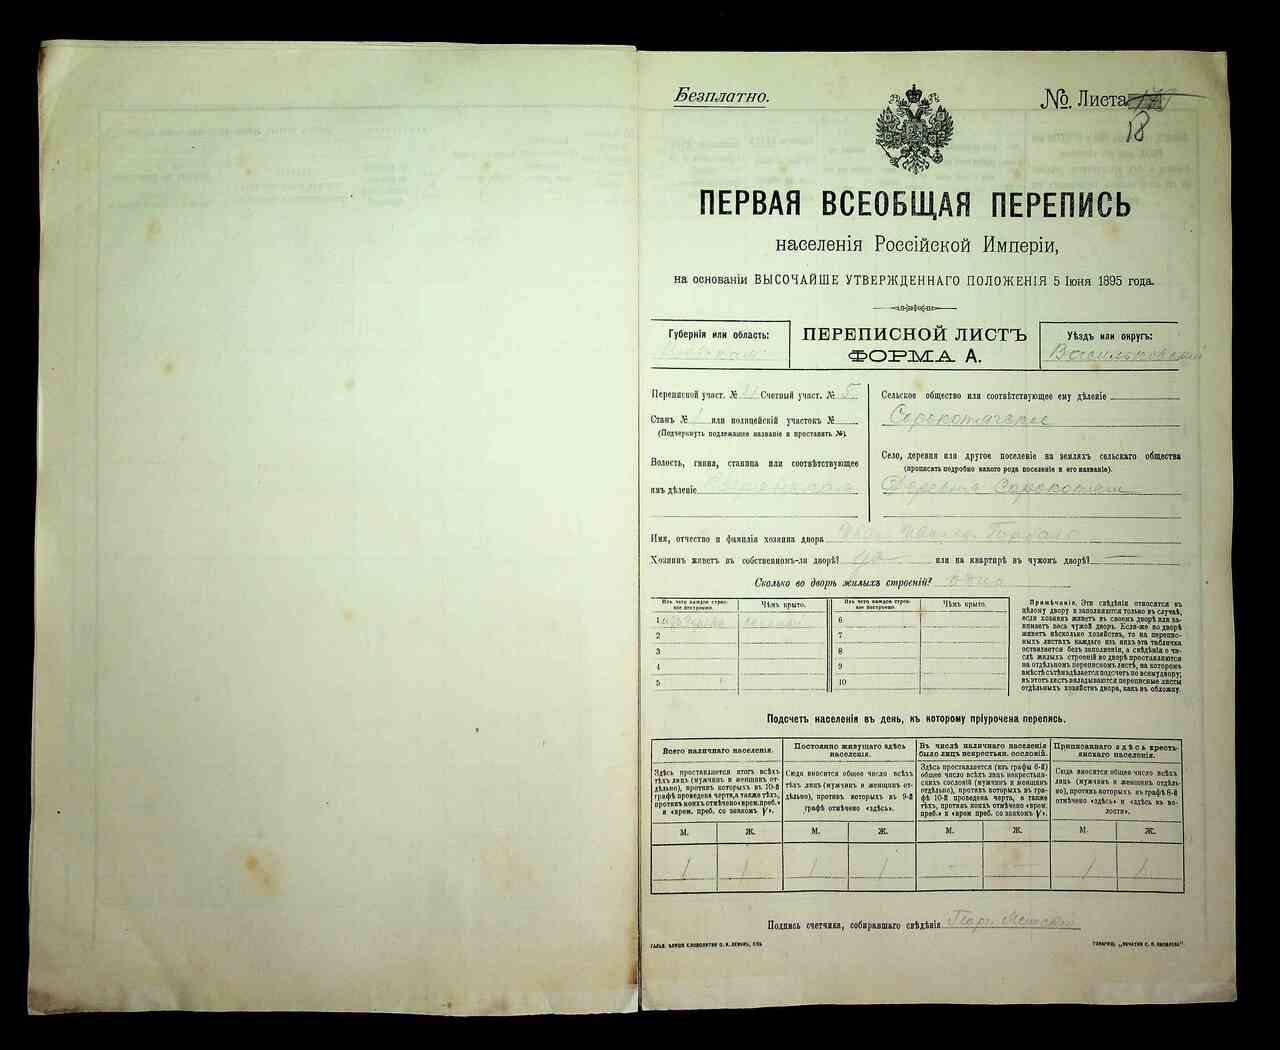 Безплатно.
№. Листа
18
ПЕРВАЯ ВСЕОБЩАЯ ПЕРЕПИСЬ
населенія Россійской Имперіи,
на основаніи ВЫСОЧАЙШЕ УТВЕРЖДЕННАГО ПОЛОЖЕНІЯ 5 Іюня 1895 года.
Губернія или область:
ПЕРЕПИСНОЙ ЛИСТЪ
ФОРМА А.
Уѣздъ или округъ:
Васильковскій
Переписной участ. № 11 Счетный участ. № 5
Станъ № 1 или полицейскій участокъ №
(Подчеркнуть подлежащее названіе и проставить №).
Волость, гмина, станица или соотвѣтствующее
имъ дѣленіе
Сельское общество или соотвѣтствующее ему дѣленіе
Сорокотягское
Село, деревня или другое поселеніе на земляхъ сельскаго общества
(прописать подробно какого рода поселеніе и его названіе).
Деревня Сорокотяги
Имя, отчество и фамилія хозяина двора Иван
Хозяинъ живетъ въ собственномъ-ли дворѣ? да или на квартирѣ въ чужомъ дворѣ? —
Сколько во дворѣ жилыхъ строеній? одно
Изъ чего каждое строеніе построено.
Чѣмъ крыто.
Изъ чего каждое строеніе построено.
Чѣмъ крыто.
1 изъ дерева соломой 6
2 7
3 8
4 9
5 10
Примѣчаніе. Эти свѣдѣнія относятся къ
цѣлому двору и заполняются только въ случаѣ,
если хозяинъ живетъ въ своемъ дворѣ или занимаетъ весь чужой дворъ. Если-же во дворѣ
живетъ нѣсколько хозяйствъ, то на переписныхъ листахъ каждаго изъ нихъ эта табличка
оставляется безъ заполненія, а свѣдѣнія о числѣ жилыхъ строеній во дворѣ проставляются
на отдѣльномъ переписномъ листѣ, на которомъ
вмѣстѣ съ тѣмъ дѣлается подсчетъ по всему двору;
въ этотъ листъ вкладываются переписные листы
отдѣльныхъ хозяйствъ двора, какъ въ обложку.
Подсчетъ населенія въ день, къ которому пріурочена перепись.
Всего наличнаго населенія.
Здѣсь проставляется итогъ всѣхъ
тѣхъ лицъ (мужчинъ и женщинъ отдѣльно), противъ которыхъ въ 10-й
графѣ проведена черта, а также тѣхъ,
противъ коихъ отмѣчено «врем. преб.»
и «врем. преб. со знакомъ V».
Постоянно живущаго здѣсь
населенія.
Сюда вносится общее число всѣхъ
тѣхъ лицъ (мужчинъ и женщинъ отдѣльно), противъ которыхъ въ 9-й
графѣ отмѣчено «здѣсь».
Въ числѣ наличнаго населенія
было лицъ некрестьян. сословій.
Здѣсь проставляется (изъ графы 6-й)
общее число всѣхъ лицъ некрестьянскихъ сословій (мужчинъ и женщинъ
отдѣльно), противъ которыхъ въ графѣ 10-й проведена черта, а также
тѣхъ, противъ коихъ отмѣчено «врем.
преб.» и «врем преб. со знакомъ V».
Приписаннаго здѣсь крестьянскаго населенія.
Сюда вносится общее число всѣхъ
лицъ (мужчинъ и женщинъ отдѣльно), противъ которыхъ въ графѣ 8-й
отмѣчено «здѣсь» и «здѣсь въ волости».
М. Ж. М. Ж. М. Ж. М. Ж.
1 1 1 1 — — 1 1
Подпись счетчика, собиравшаго свѣдѣнія